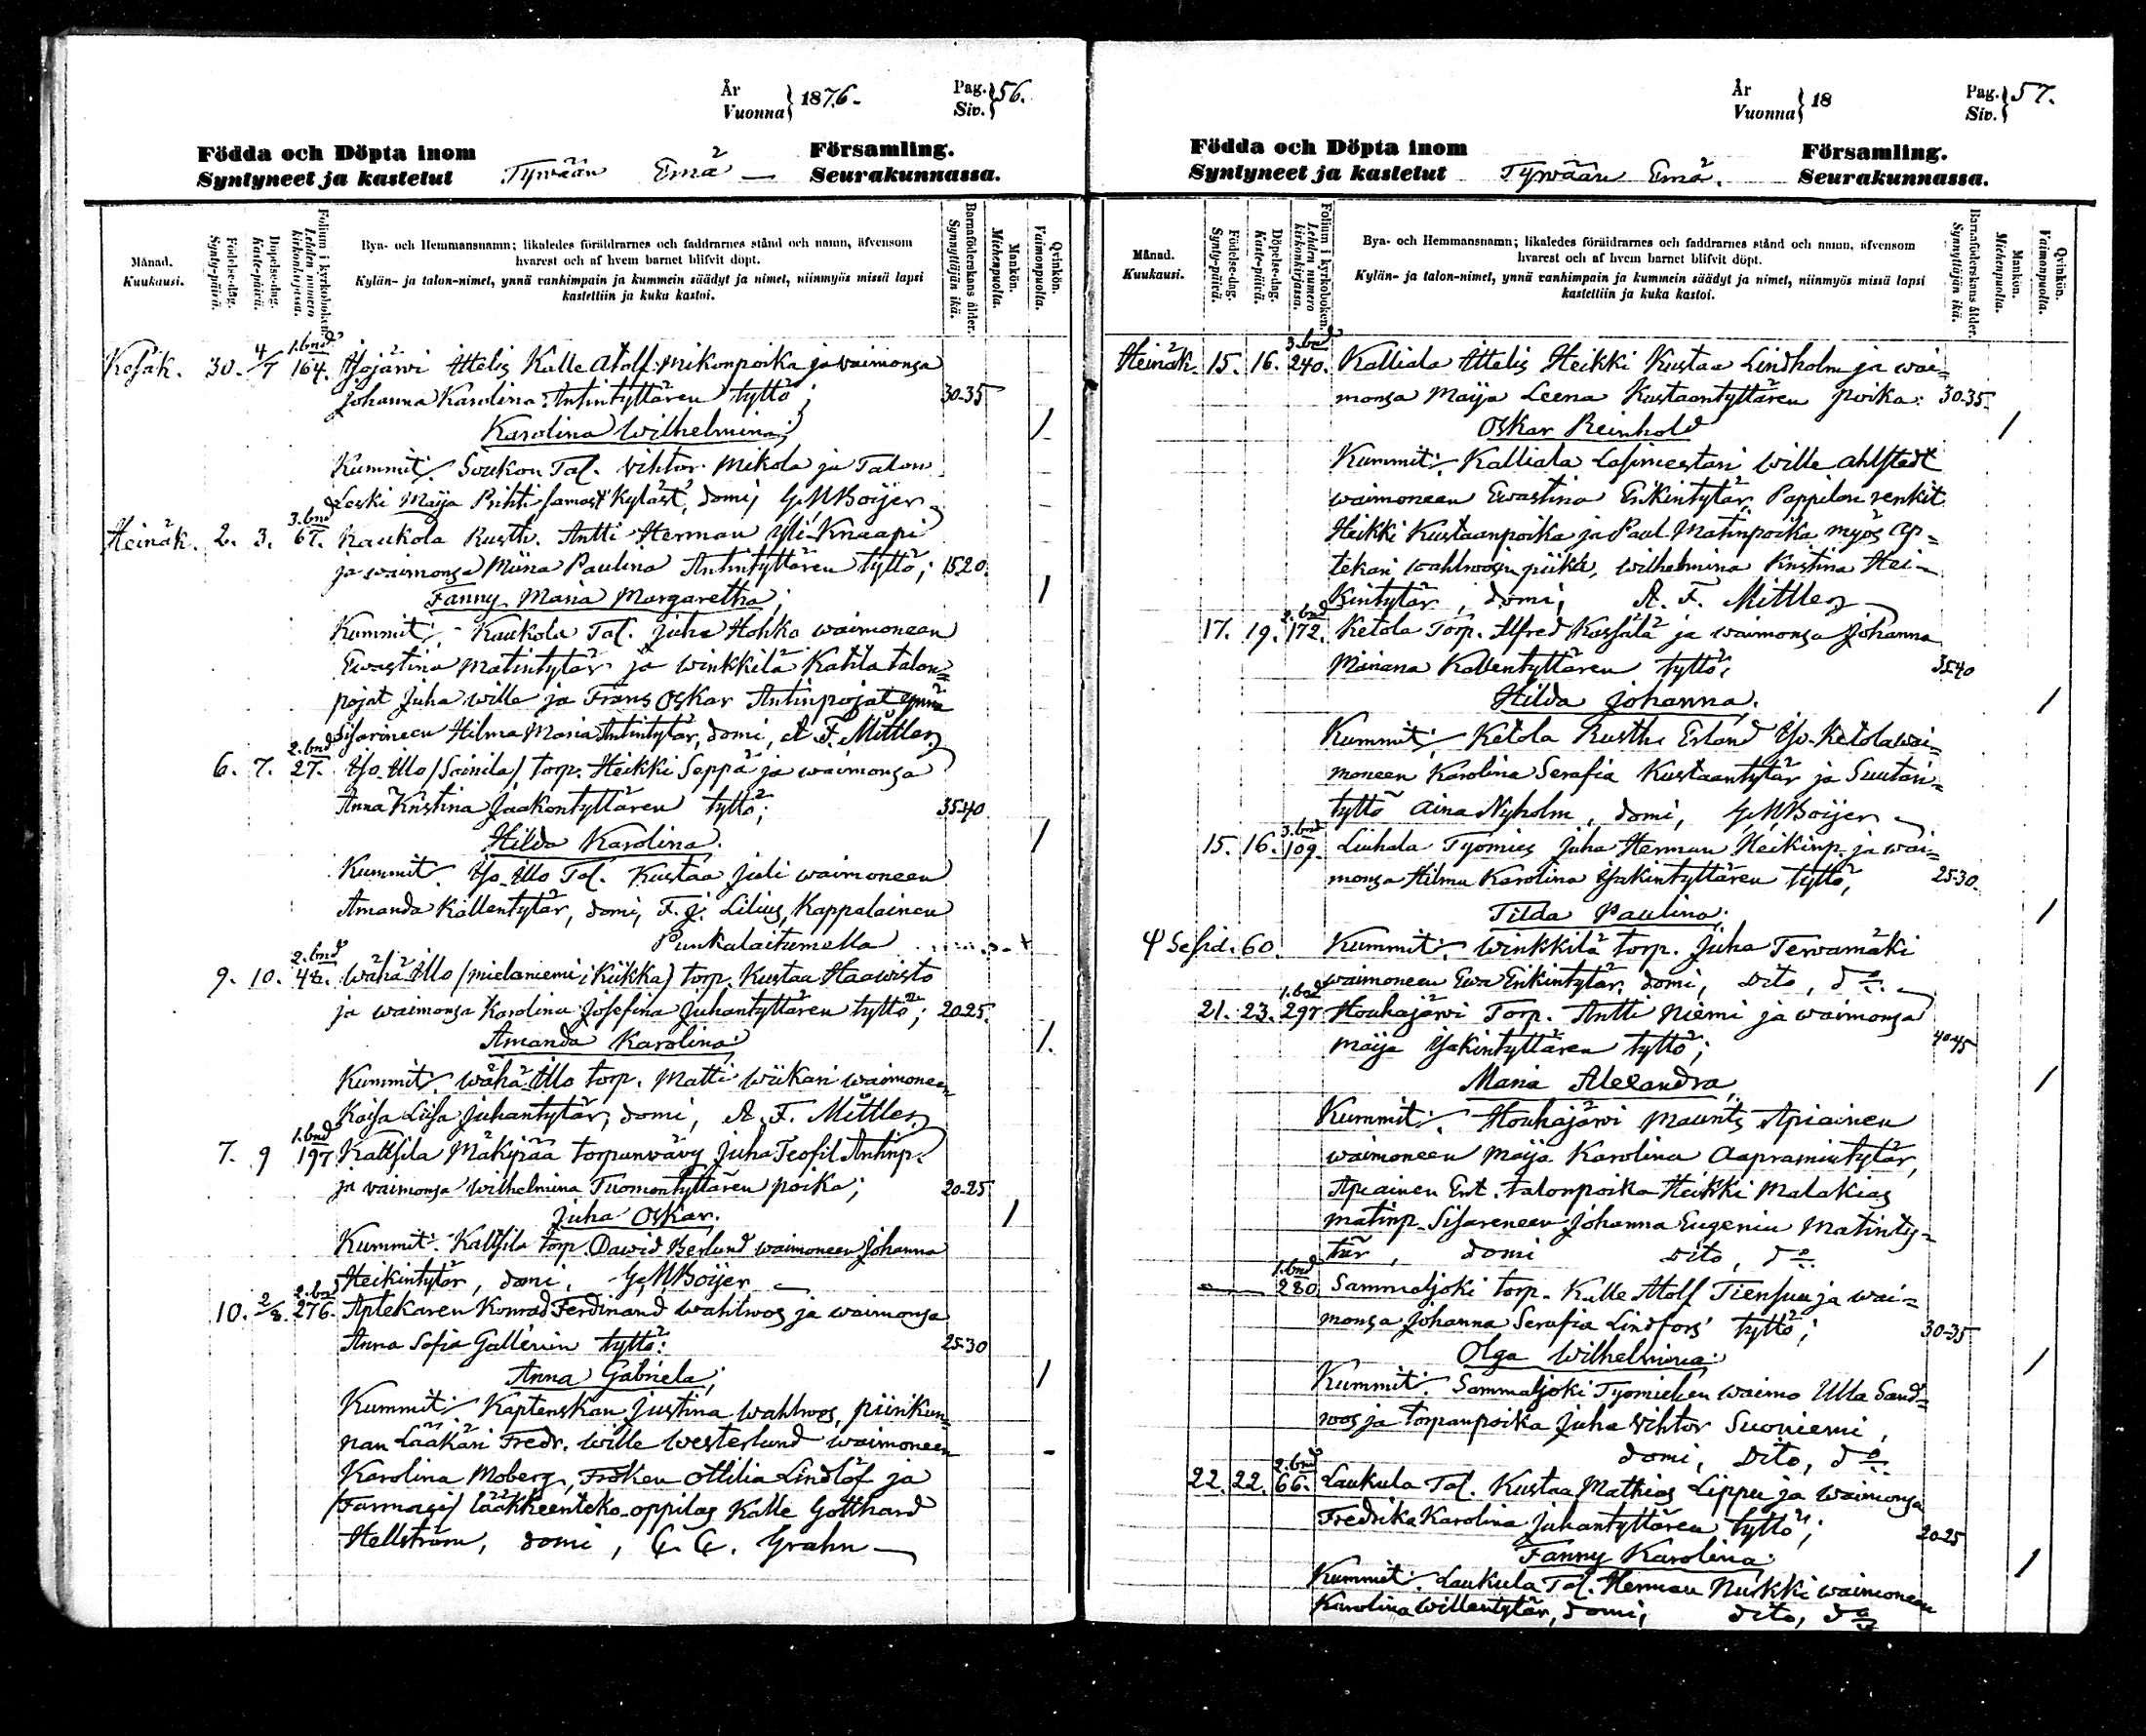 År
Vuonna } 1876. Pag. Siv. } 56.
Födda och Döpta inom Församling.
Syntyneet ja kastetut Tyrwään Emä Seurakunnassa.
Månad. Kuukausi.
Födelse-dag. Synty-päivä.
Döpelse-dag. Kaste-päivä.
Folium i kyrkoboken. Lehden numero kirkonkirjassa.
Bya- och Hemmansnamn; likaledes föräldrarnes och faddrarnes stånd och namn, äfvensom
hvarest och af hvem barnet blifvit döpt.
Kylän- ja talon-nimet, ynnä vanhimpain ja kummein säädyt ja nimet, niinmyös missä lapsi
kastettiin ja kuka kastoi.
Barnaföderskans ålder. Synnyttäjän ikä.
Mankön. Miehenpuolta.
Qvinkön. Vaimonpuolta.
Kesäk. 30. 4/7 1.bnd 164. Ittelis Kalle Adolf Mikonpoika ja vaimonsa
Johanna Karolina Antintyttären tyttö; 30-35
Karolina Wilhelmina; /
Kummit: Soukon Tal. Vihtor Mikola ja Talon
Leski Maija Pihti samast kyläst, domi, Boijer
Heinäk. 2. 3. 3.bnd 67. Kaukola Rusth. Antti Herman Yli-Knaapi
ja waimonsa Miina Paulina Antintyttären tyttö; 15-20.
Fanny Maria Margaretha; /
Kummit: Kaukola Tal. Juha Hohko waimoneen
Ewastina Matintytär ja Winkkilä Katila talon=
pojat Juha Wille ja Frans Oskar Antinpojat ynnä
Sisarineen Hilma Maria Antintytär, domi, A. F. Mittler
6. 7. 2.bnd 27. Iso Illo /Soinila/ torp. Heikki Seppä ja waimonsa
Anna Kristina Jaakontyttären tyttö; 35-40
Hilda Karolina. /
Kummit: Iso Illo Tal. Kustaa Juli waimoneen
Amanda Kallentytär, domi, F. J. Lilius, Kappalainen
Punkalaitumella
9. 10. 2.bnd 48. Wähä Illo /Mielaniemi, Kiikka/ torp. Kustaa Haawisto
ja waimonsa Karolina Josefina Juhantyttären tyttö; 20-25.
Amanda Karolina; /.
Kummit: Wähä Illo torp. Matti Wiikari waimoneen
Kaisa Liisa Juhantytär, domi, A. F. Mittler
7. 9 1.bnd 197 Kaltsila Mäkipää torpanwävy Juha Teofil Antinp.
ja vaimonsa Wilhelmina Tuomontyttären poika; 20-25
Juha Oskar. /
Kummit: Kaltsila torp. Dawid Berlund waimoneen Johanna
Heikintytär, domi, Boijer
10. 2/8. 2.bnd 276. Aptekaren Konrad Ferdinand Wahlroos ja waimonsa
Anna Sofia Gallenin tyttö: 25-30
Anna Gabriela; /
Kummit: Kaptenskan Justina Wahlroos, piirikun=
nan Lääkäri Fredr. Wille Westerlund waimoneen
Karolina Moberg, Fröken Ottilia Lindlöf ja
/Farmasi/ lääkkeenteko-oppilas Kalle Gotthard
Hellström, domi, Grahn
År
Vuonna } 18 Pag. Siv. } 57.
Födda och Döpta inom Församling.
Syntyneet ja kastetut Tyrwään Emä. Seurakunnassa.
Månad. Kuukausi.
Födelse-dag. Synty-päivä.
Döpelse-dag. Kaste-päivä.
Folium i kyrkoboken. Lehden numero kirkonkirjassa.
Bya- och Hemmansnamn; likaledes föräldrarnes och faddrarnes stånd och namn, äfvensom
hvarest och af hvem barnet blifvit döpt.
Kylän- ja talon-nimet, ynnä vanhimpain ja kummein säädyt ja nimet, niinmyös missä lapsi
kastettiin ja kuka kastoi.
Barnaföderskans ålder. Synnyttäjän ikä.
Mankön. Miehenpuolta.
Qvinkön. Vaimonpuolta.
Heinäk. 15. 16. 3.bnd 240. Kalliala Ittelis Heikki Kustaa Lindholm ja wai=
monsa Maija Leena Kustaantyttären poika: 30-35.
Oskar Reinhold /
Kummit: Kalliala Lasimestari Wille Ahlstedt
waimoneen Ewastina Erikintytär, Pappilan renkit
Heikki Kustaanpoika ja Paul Matinpoika myös Ap=
tekari Wahlroosin piika, Wilhelmina Kristina Hei=
kintytär, domi, A. F. Mittler
17. 19. 2.bnd 172. Ketola Torp. Alfred Kassala ja waimonsa Johanna
Mariana Kallentyttären tyttö; 35-40
Hilda Johanna. /
Kummit: Ketola Rusth. Erland Iso-Ketola wai=
moneen Karolina Serafia Kustaantytär ja Suutari=
tyttö Aina Nyholm, domi, Boijer
15. 16. 3.bnd 109. Liuhala Työmies Juha Herman Heikinp. ja wai=
monsa Hilma Karolina Isakintyttären tyttö, 25-30.
Tilda Paulina; /
60. Kummit: Winkkilä torp. Juha Terwamäki
waimoneen Ewa Erikintytär, domi, Dito, do
21. 23. 1.bnd 297 Houhajärwi Torp. Antti Niemi ja waimonsa
Maija Isakintyttären tyttö; 40-45
Maria Alexandra, /
Kummit: Houhajärwi Maurits Apiainen
waimoneen Maija Karolina Aapramintytär,
Apiainen Ent. talonpoika Heikki Malakias
Matinp. Sisareneen Johanna Eugenia Matinty=
tär, domi Dito, do
1.bnd 280 Sammaljoki torp. Kalle Adolf Tiensuu ja wai=
monsa Johanna Serafia Lindfors' tyttö; 30-35
Olga Wilhelmina: /
Kummit: Sammaljoki Työmiehen waimo Ulla Sand=
roos ja torpanpoika Juha Vihtor Suoniemi,
domi, Dito, do
22. 22. 2.bnd 66. Laukula Tal. Kustaa Mathias Lippu ja waimonsa
Fredrika Karolina Juhantyttären tyttö; 20-25
Fanny Karolina; /
Kummit: Laukula Tal. Herman Nuikki waimoneen
Karolina Willentytär, domi, dito, do